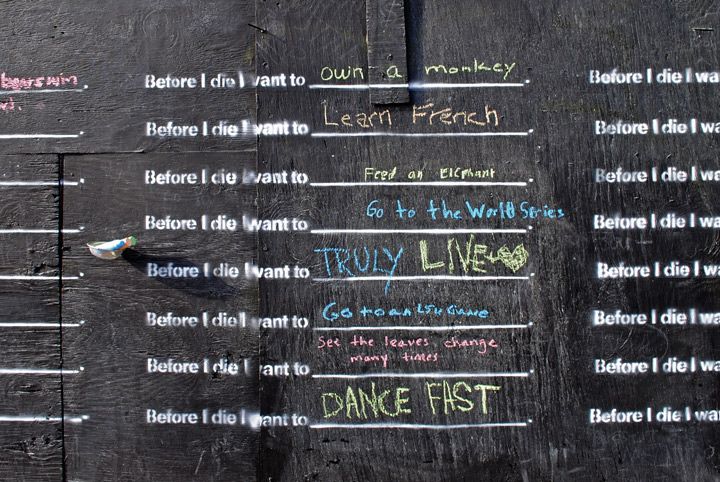 Before I die I want to own a monkey. Before I die I wa
Before I die I want to Learn French. Before I die I wa
Before I die I want to Feed an Elephant. Before I die I wa
Before I die I want to Go to the World Series Before I die I wa
Before I die I want to TRULY LIVE. Before I die I wa
Before I die I want to Go to an LSU Game. Before I die I wa
Before I die I want to See the leaves change
many times. Before I die I wa
Before I die I want to DANCE FAST. Before I die I wa